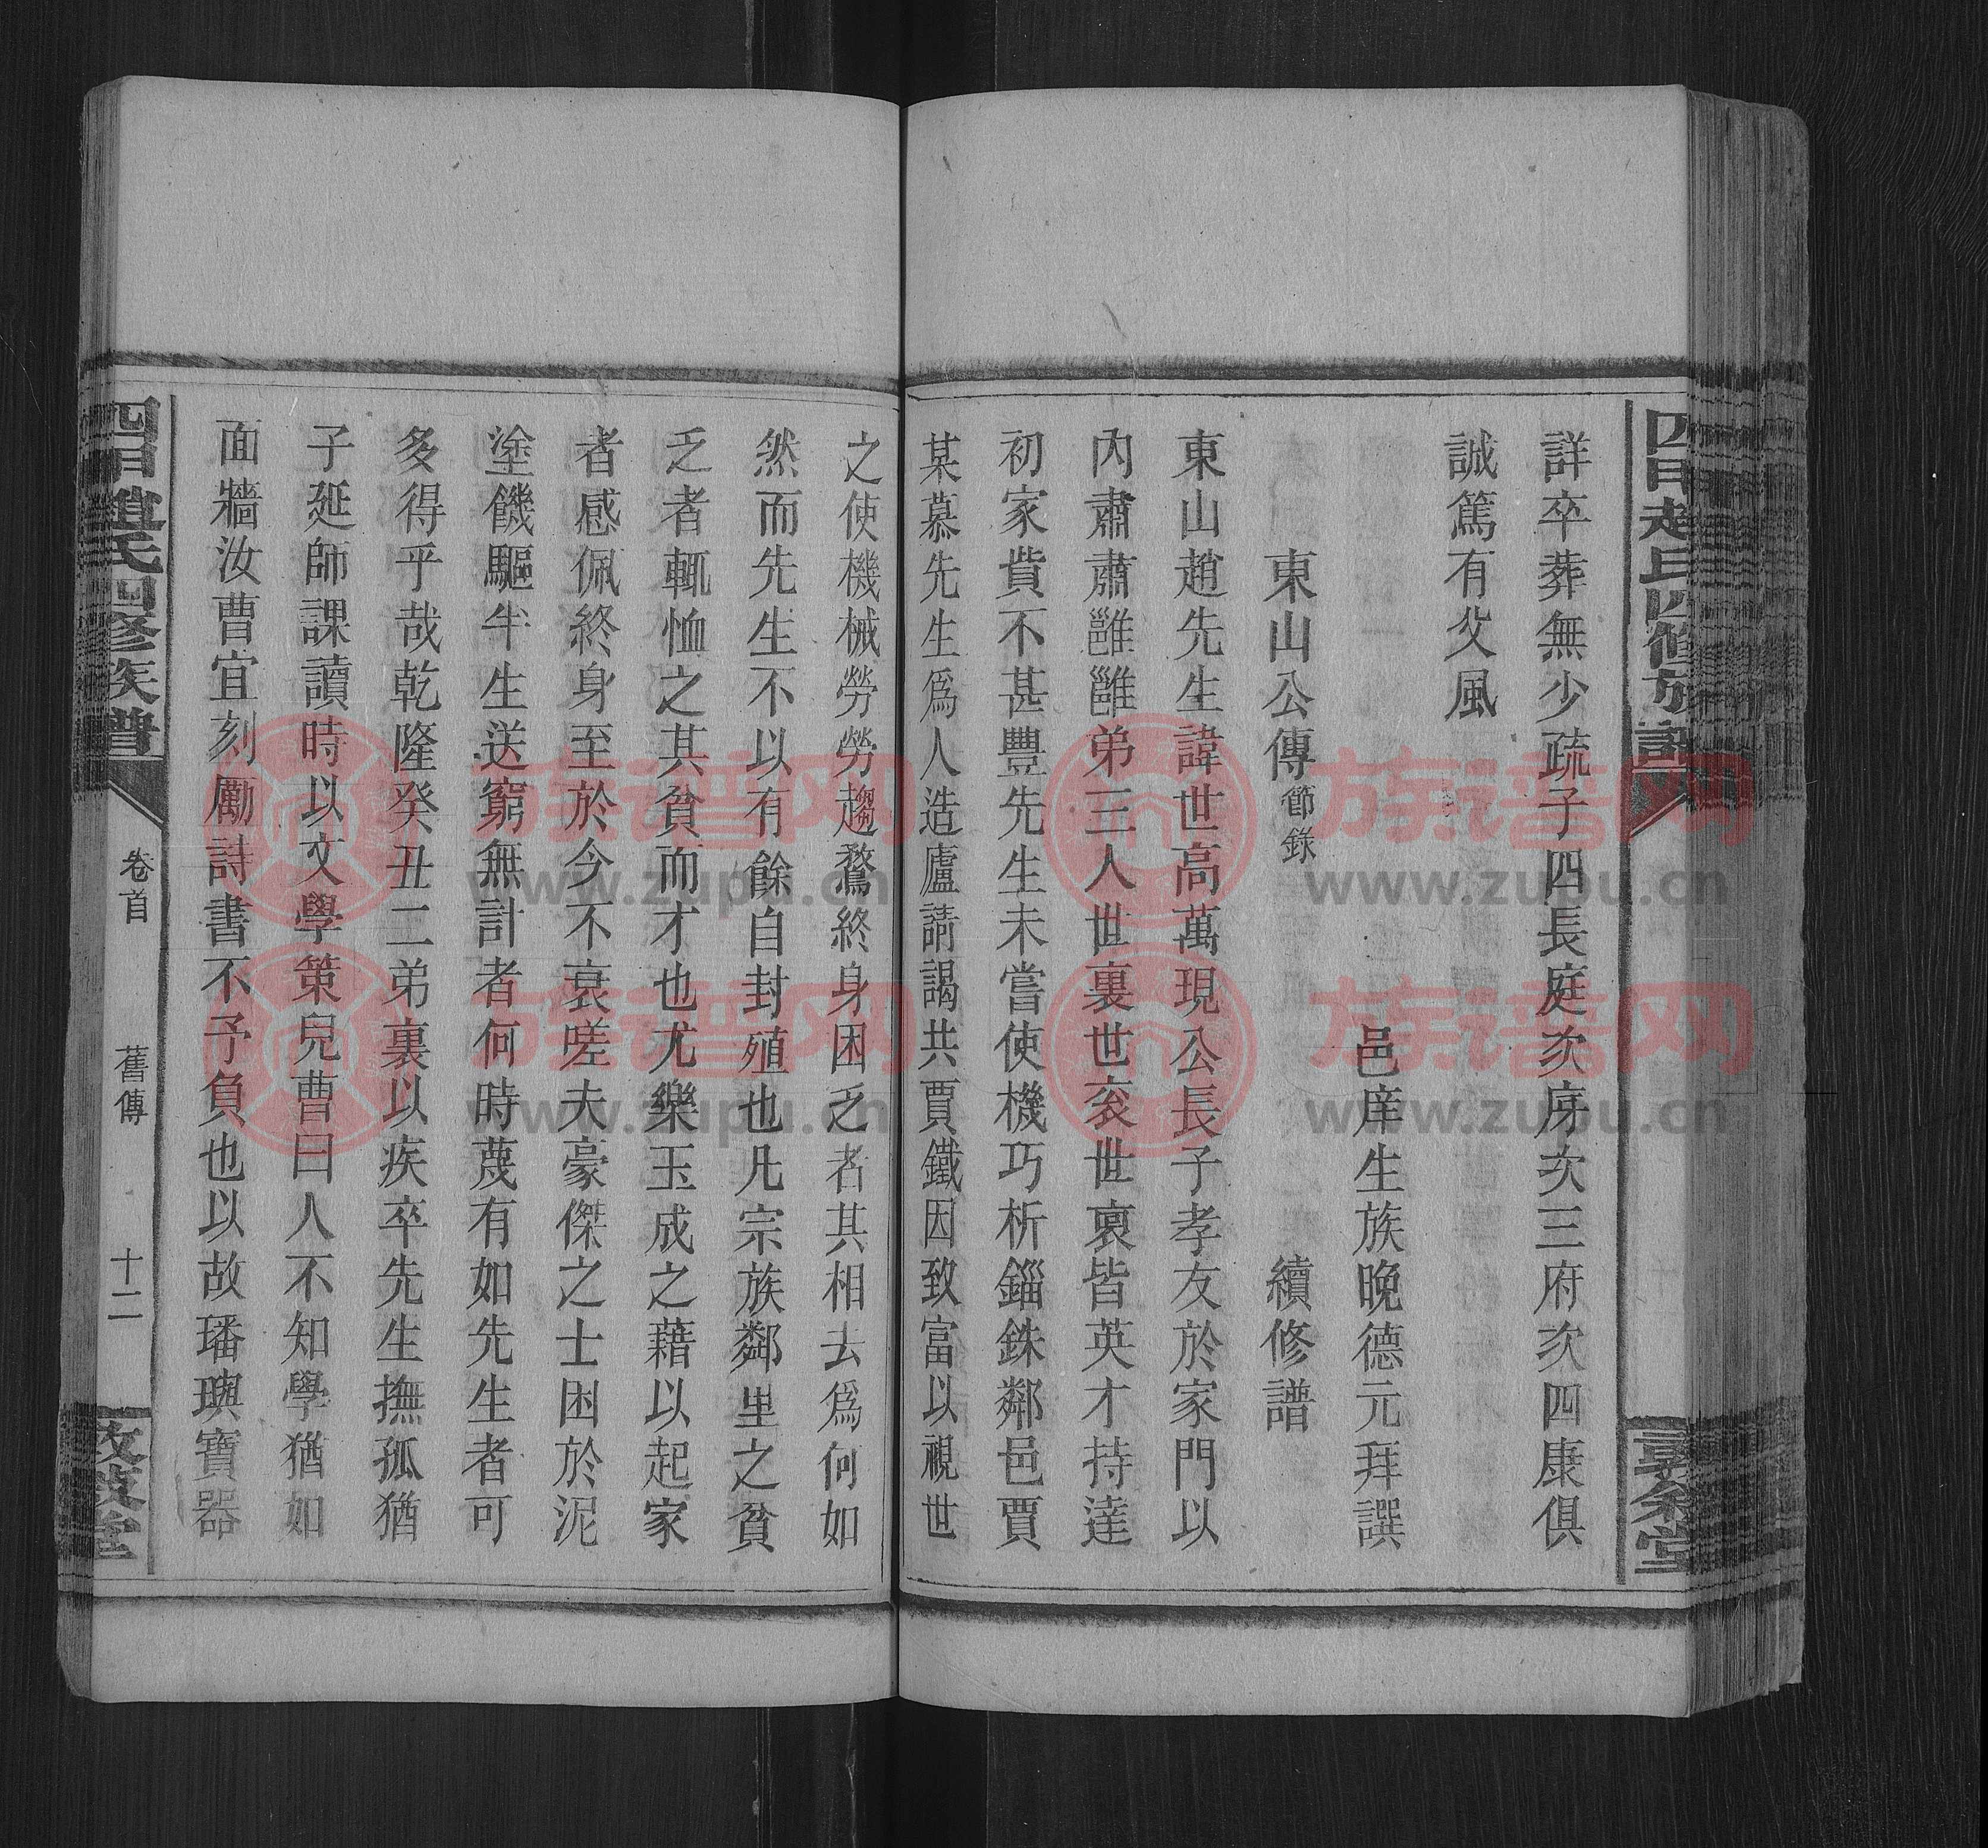 四甲趙氏四修族譜
敦敘堂
詳卒葬無少疏子四長庭次庠次三府次四康俱
誠篤有父風
邑庠生族晚德元拜譔
東山公傳節錄
續修譜
東山趙先生諱世高萬現公長子孝友於家門以
內肅肅雝雝弟三人世裏世袞世裒皆英才持達
初家貲不甚豐先生未嘗使機巧析錙銖鄰邑賈
某慕先生爲人造廬請謁共賈鐵因致富以視世
之使機械勞勞趨鶩終身困乏者其相去爲何如
然而先生不以有餘自封殖也凡宗族鄰里之貧
乏者輒恤之其貧而才也尤樂玉成之藉以起家
者感佩終身至於今不衰嗟夫豪傑之士困於泥
塗饑驅半生送窮無計者何時蔑有如先生者可
多得乎哉乾隆癸丑二弟裏以疾卒先生撫孤猶
子延師課讀時以文學策兒曹曰人不知學猶如
面牆汝曹宜刻勵詩書不予負也以故璠璵寶器
四甲趙氏四修族譜
卷首
舊傳
十二
敦敘堂
族谱网
www.zupu.cn
族谱网
www.zupu.cn
族谱网
www.zupu.cn
族谱网
www.zupu.cn